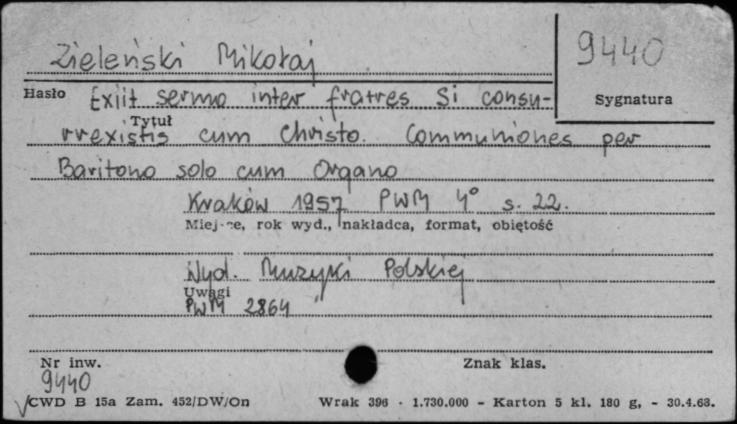 Zieleński Mikołaj
9440
Hasło
Sygnatura
Exiit sermo inter fratres Si consu-
Tytuł
rrexistis cum Christo. Communiones per
Baritono solo cum Organo
Kraków 1957 PWM 4° s. 22.
Miejsce, rok wyd., nakładca, format, objętość
Wyd. Muzyki Polskiej
Uwagi
PWM 2864
Nr inw.
Znak klas.
9440
CWD B 15a Zam. 452/DW/On
Wrak 396 - 1.730.000 - Karton 5 kl. 180 g, - 30.4.63.